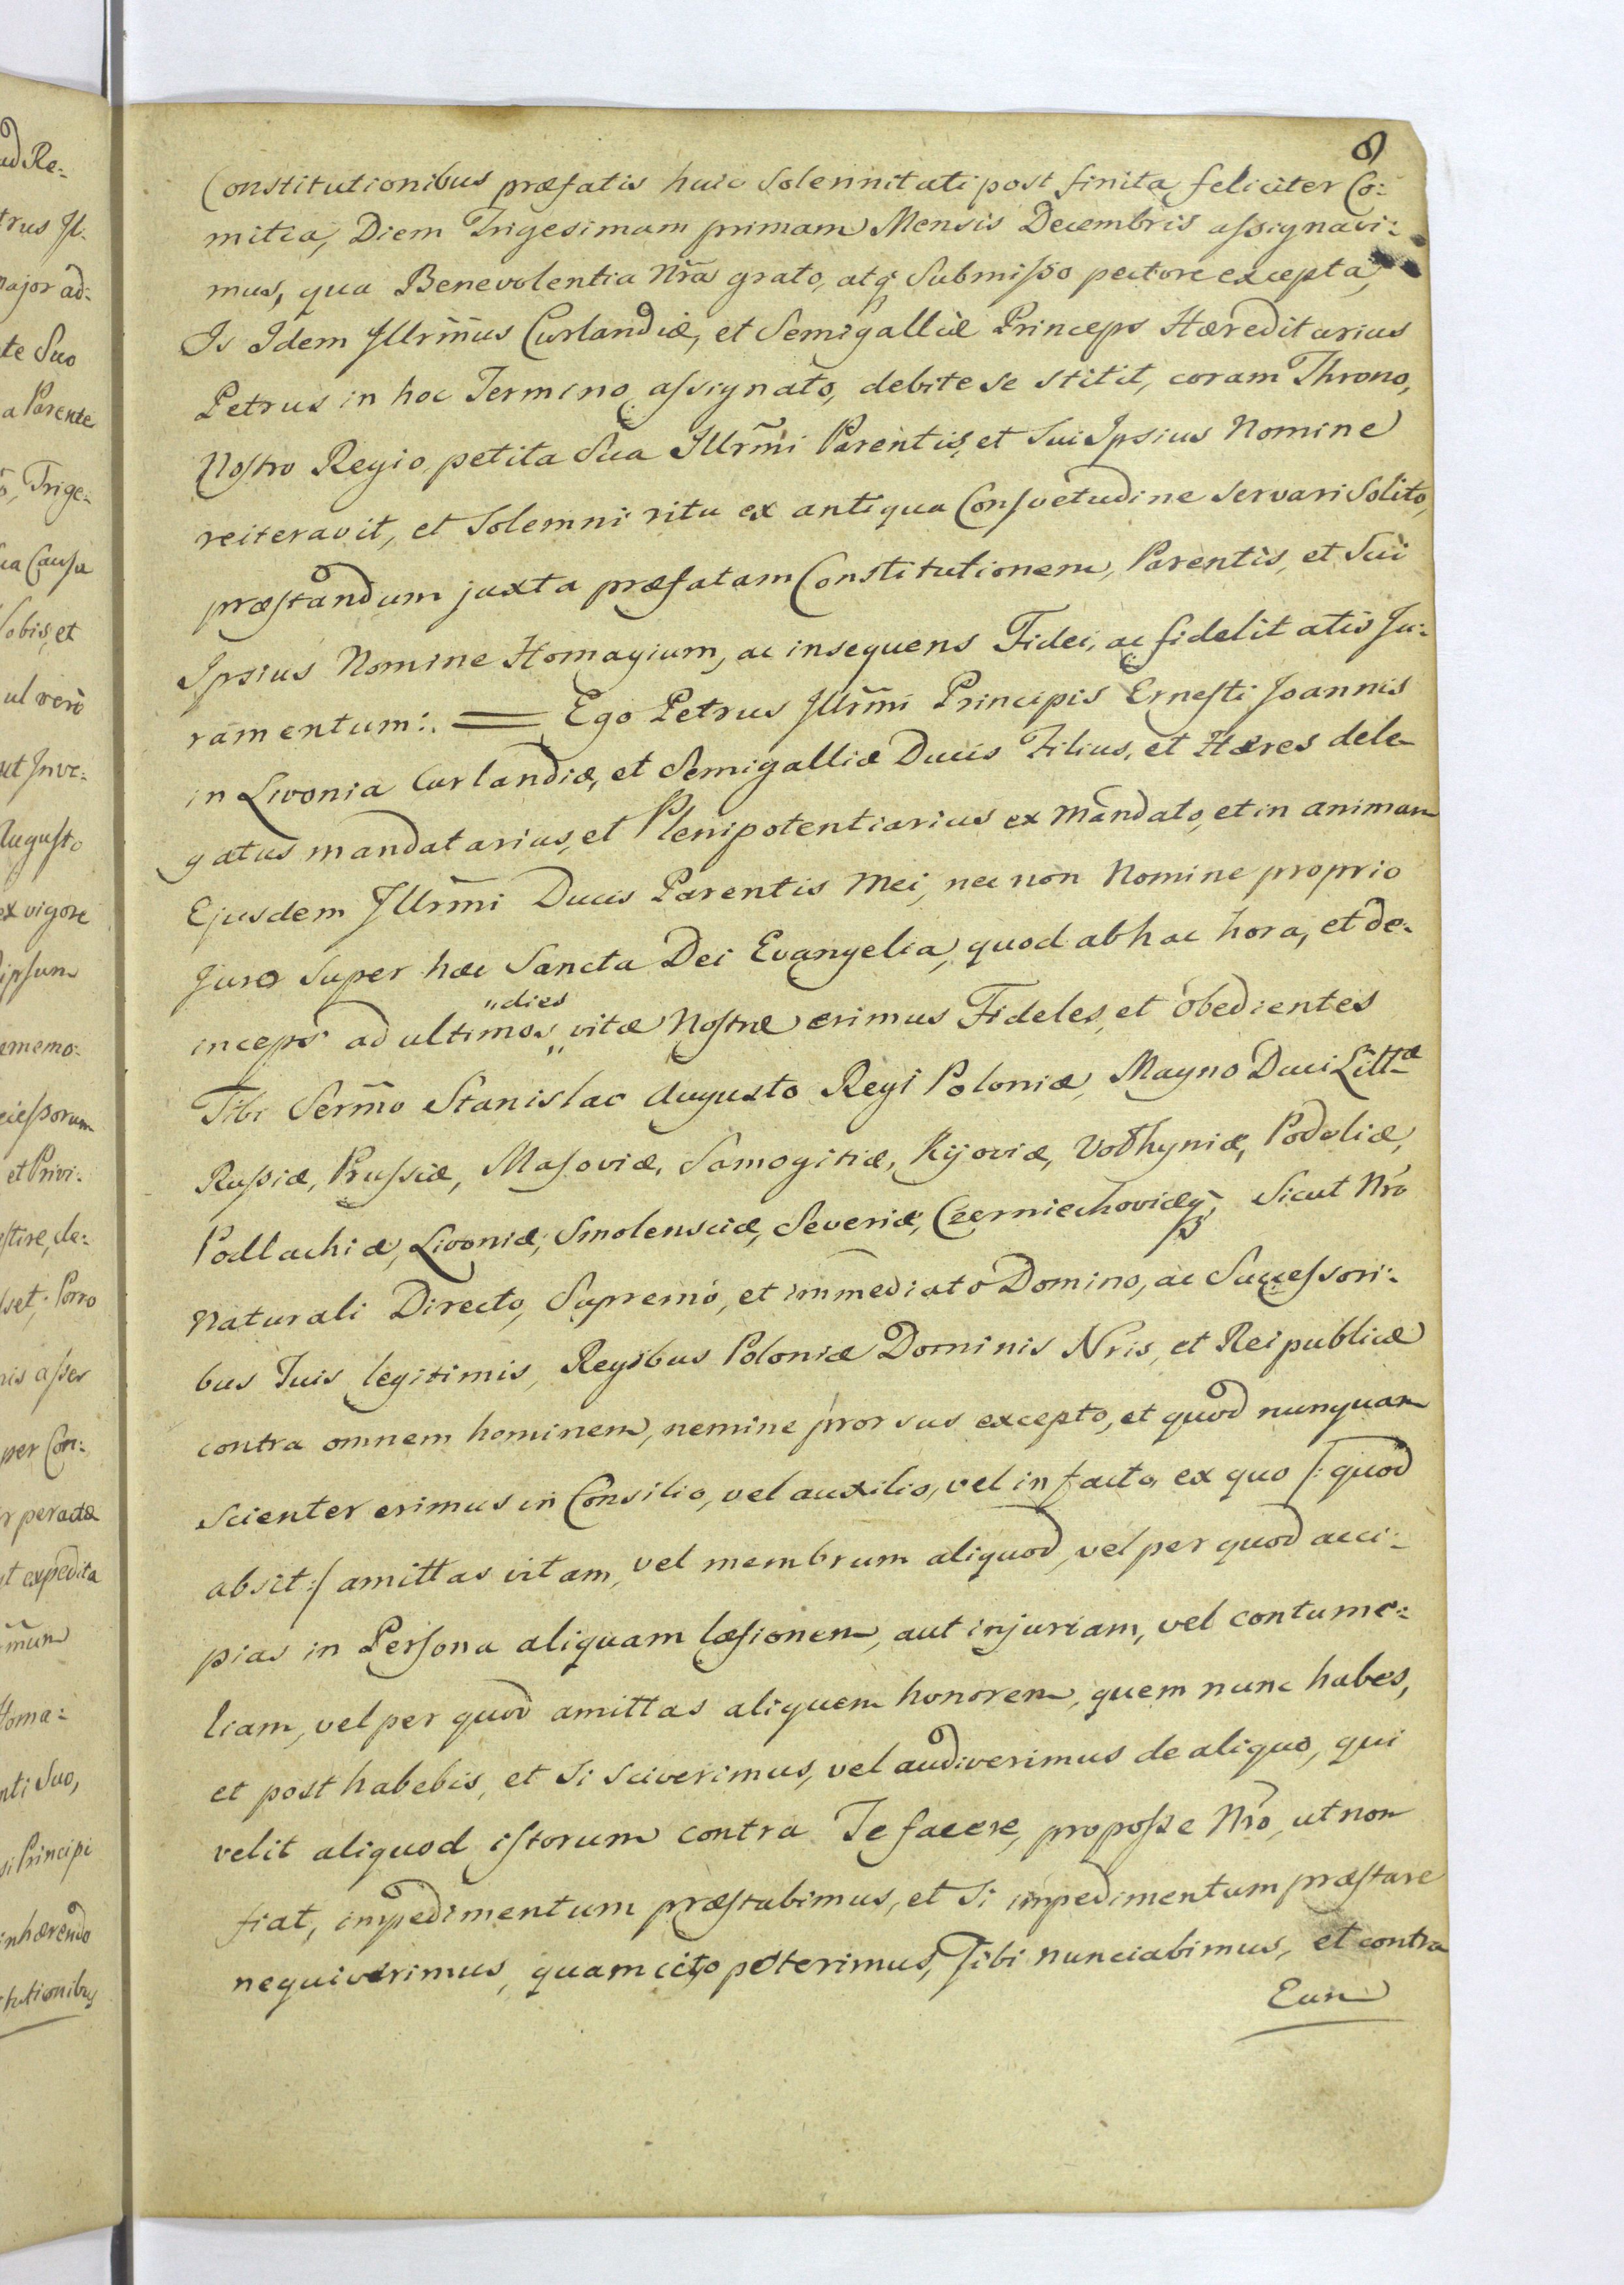 8
Constitutionibus præfatis huic Solennitati post finita feliciter Co:
mitia, Diem Trigesimam primam Mensis Decembris assignavi:
mus, qua Benevolentia Nr̃a grato, atq; Submisso pectore excepta,
Is Idem Illrm̃us Curlandiæ, et Semigalliæ Princeps Hæreditarius
Petrus in hoc Termino assignato, debite se stitit, coram Throno,
Nostro Regio petita Sua Illrm̃i Parentis, et Sui Ipsius Nomine
reiteravit, et Solemni ritu ex antiqua Consvetudine Servari Solito,
præstandum juxta præfatam Constitutionem, Parentis, et Sui
Ipsius Nomine Homagium, ac insequens Fidei, ac fidelitatis Ju:
ramentum:. = Ego Petrus Illrm̃i Principis Ernesti Joannis
in Livonia Curlandiæ, et Semigalliæ Ducis Filius, et Hæres dele
gatus mandatarius, et Plenipotentiarius ex Mandato, et in animam
Ejusdem Illrm̃i Ducis Parentis Mei, nec non Nomine proprio
Juro Super hæc Sancta Dei Evangelia, quod ab hac hora, et de:
inceps ad ultimos "dies" vitæ Nostræ erimus Fideles, et obedientes
Tibi Serm̃o Stanislao Augusto Regi Poloniæ, Magno Duci Littæ
Russiæ, Prussiæ, Masoviæ, Samogitiæ, Kijoviæ, Volhyniæ, Podoliæ,
Podlachiæ, Livoniæ, Smolensciæ, Severiæ, Czerniechoviæq;, Sicut Nr̃o
Naturali Directo, Supremo, et immediato Domino, ac Successori:
bus Tuis legitimis, Regibus Poloniæ Dominis Nris, et Reipublicæ
contra omnem hominem, nemine prorsus excepto, et quod nunquam
Scienter erimus in Consilio, vel auxilio, vel in facto, ex quo /: quod
absit :/ amittas vitam, vel membrum aliquod, vel per quod acci:
pias in Persona aliquam læsionem, aut injuriam, vel contume:
liam, vel per quod amittas aliquem honorem, quem nunc habes,
et post habebis, et Si Sciverimus, vel audiverimus de aliquo, qui
velit aliquod istorum contra Te facere, pro posse Nr̃o, ut non
fiat, impedimentum præstabimus, et Si impedimentum præstare
nequiverimus, quam cito poterimus, Tibi nunciabimus, et contra
Eum